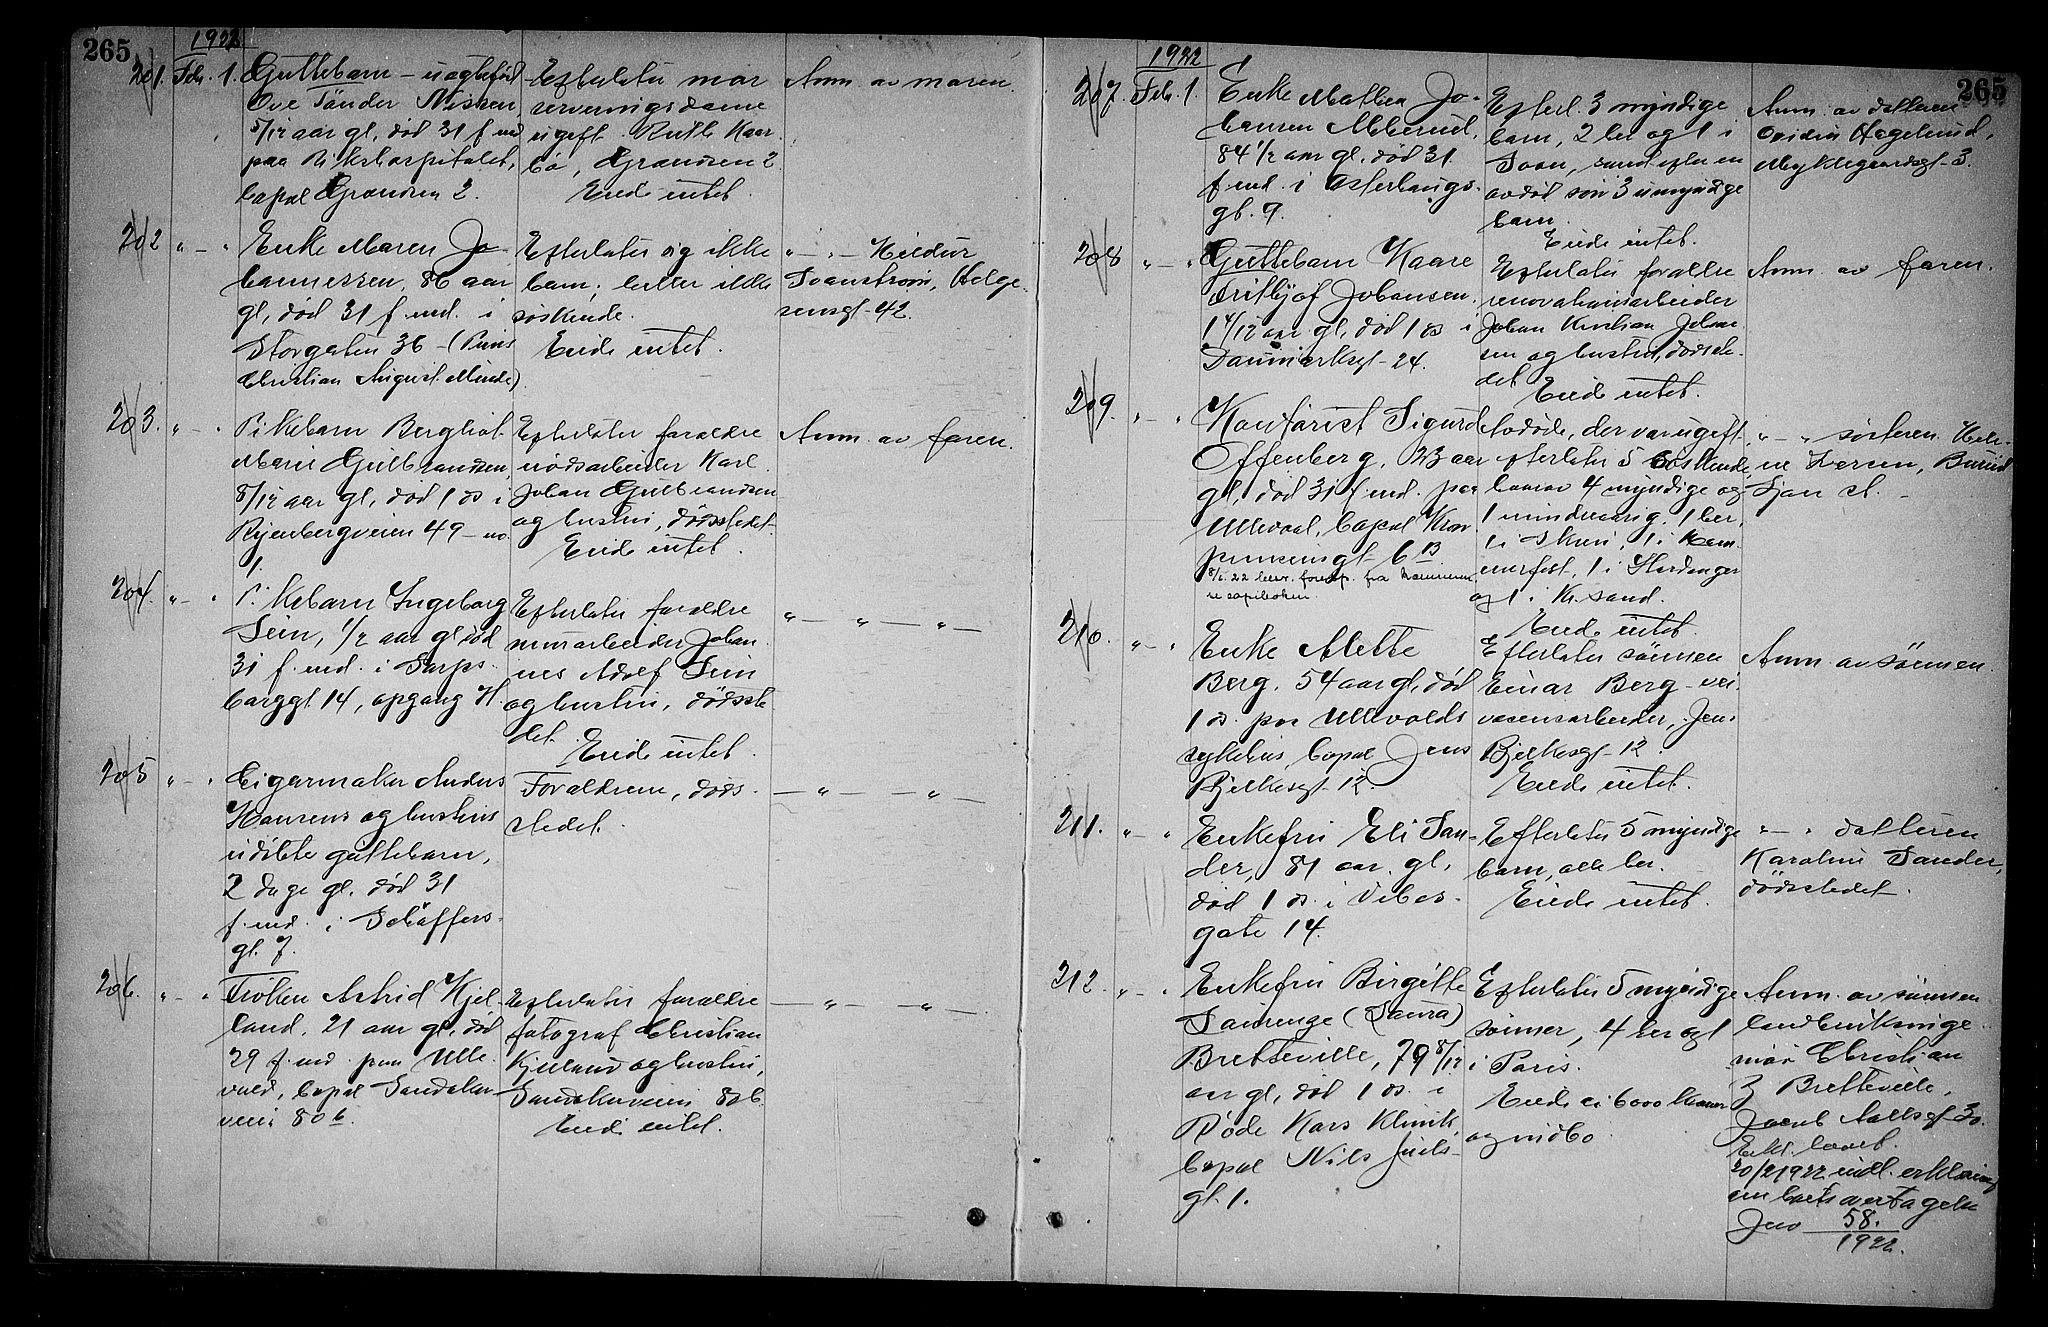 265
1922
201. Feb. 1. Guttebarn - uægtefød
Ove Tønder Nissen,
5/12 aar gl., død 31 f. md
paa Rikshospitalet,
bopæl Grændsen 2.
Efterlater mor
serveringsdame
ugift Ruth Kaar
bø, Grændsen 2
Eiede intet.
Anm. av moren.
202 " — " Enke Maren Jo
hannessen, 86 aar
gl., død 31 f. md. i
Storgaten 36 - (Prins
Christian August Minde)
Efterlater sig ikke
barn, heller ikke
søskende.
Eiede intet.
" — " — Hildur
Svanstrøm, Helge
sensgt. 42.
203. " — " Pikebarn Bergliot
Marie Gulbrandsen,
8/12 aar gl., død 1 ds i
Ryenbergveien 49 - no.
1.
Efterlater forældre
nødsarbeider Karl
Johan Gulbrandsen
og hustru, dødsstedet.
Eiede intet.
Anm. av faren.
204. " — " Pikebarn Ingeborg
1/2 aar gl., død
31 f. md. i Sarps-
borggt. 14, opgang H.
Efterlater forældre
murarbeider Johan
nes Adolf
og hustru, dødsste
det.
Eiede intet.
" — " — " —
205 " — " Cigarmaker Anders
Hansens og hustrus
udøbte guttebarn,
2 dage gl., død 31
f. md. i Schäffers-
gt. 7.
Forældrene, døds-
stedet.
— " — — " —
206. " — " Frøken Astrid Kjel
land, 21 aar gl., død
29 f. md. paa Ulle
vaal, bopæl Sandaker
veien 80 b
Efterlater forældre
fotograf Christian
Kjelland og hustru,
Sandakerveien 80 b.
Eiede intet.
— " — — " —
265
1922
207. Feb. 1 Enke Mathea Jo-
hansen
84 1/2 aar gl., død 31
f. md. i Østerhaugs-
gt. 9.
Efterl. 3 myndige
barn, 2 her og 1 i
Soon, samt efter en
avdød søn 3 umyndige
barn.
Eiede intet.
Anm. av datteren
Hagelund,
Myklegaardsgt. 3.
208 " — " Guttebarn Kaare
Fritjof Johansen,
1 4/12 aar gl., død 1 ds i
Danmarksgt. 24.
Efterlater forældre
renovationsarbeider
Johan Kristian Johan
sen og hustru, dødsste-
det
Eiede intet.
Anm. av faren.
209. " — " Kontorist Sigurd
Offenberg, 23 aar
gl., død 31 f. md. paa
Ullevaal, bopæl Kron
prinsensgt. 6 B
Avdøde, der var ugift
efterlater 5 søskende,
hvorav 4 myndige og
1 mindreaarig, 1 her,
1 i Skien, 1 i Ham
merfest, 1 i Hardanger
og 1 i Kr.sand.
Eiede intet.
" — " søsteren
Larsen,
Ljan st. -
210. " — " Enke Mette
Berg, 54 aar gl., død
1 ds. paa Ullevolds
sykehus, bopæl Jens
Bjelkesgt. 12.
Efterlater sønnen
Einar Berg - vei
væsensarbeider, Jens
Bjelkesgt. 12.
Eiede intet.
Anm. av sønnen
211. " — " Enkefru Eli San-
der, 81 aar gl.,
død 1 ds. i Vibes-
gate 14.
Efterlater 5 myndige
barn, alle her.
Eiede intet.
" — " datteren
Karoline Sander,
dødsstedet.
212. " — " Enkefru Birgitte
(Laura)
Bretteville, 79 8/12
aar gl., død 1 ds. i
Røde Kors Klinik,
bopæl Nils Juels-
gt. 1.
Efterlater 5 myndige
sønner, 4 her og 1
i Paris.
Eiede ca 6000 kroner
og indbo
Anm. av sønnen
landbruksinge-
niør Christian
Z Bretteville,
Jacob Aallsgt. 30.
Erkl. lovet.
20/2 1922 indl. erklæring
om boets overtagelse
Jno 58.
1922.